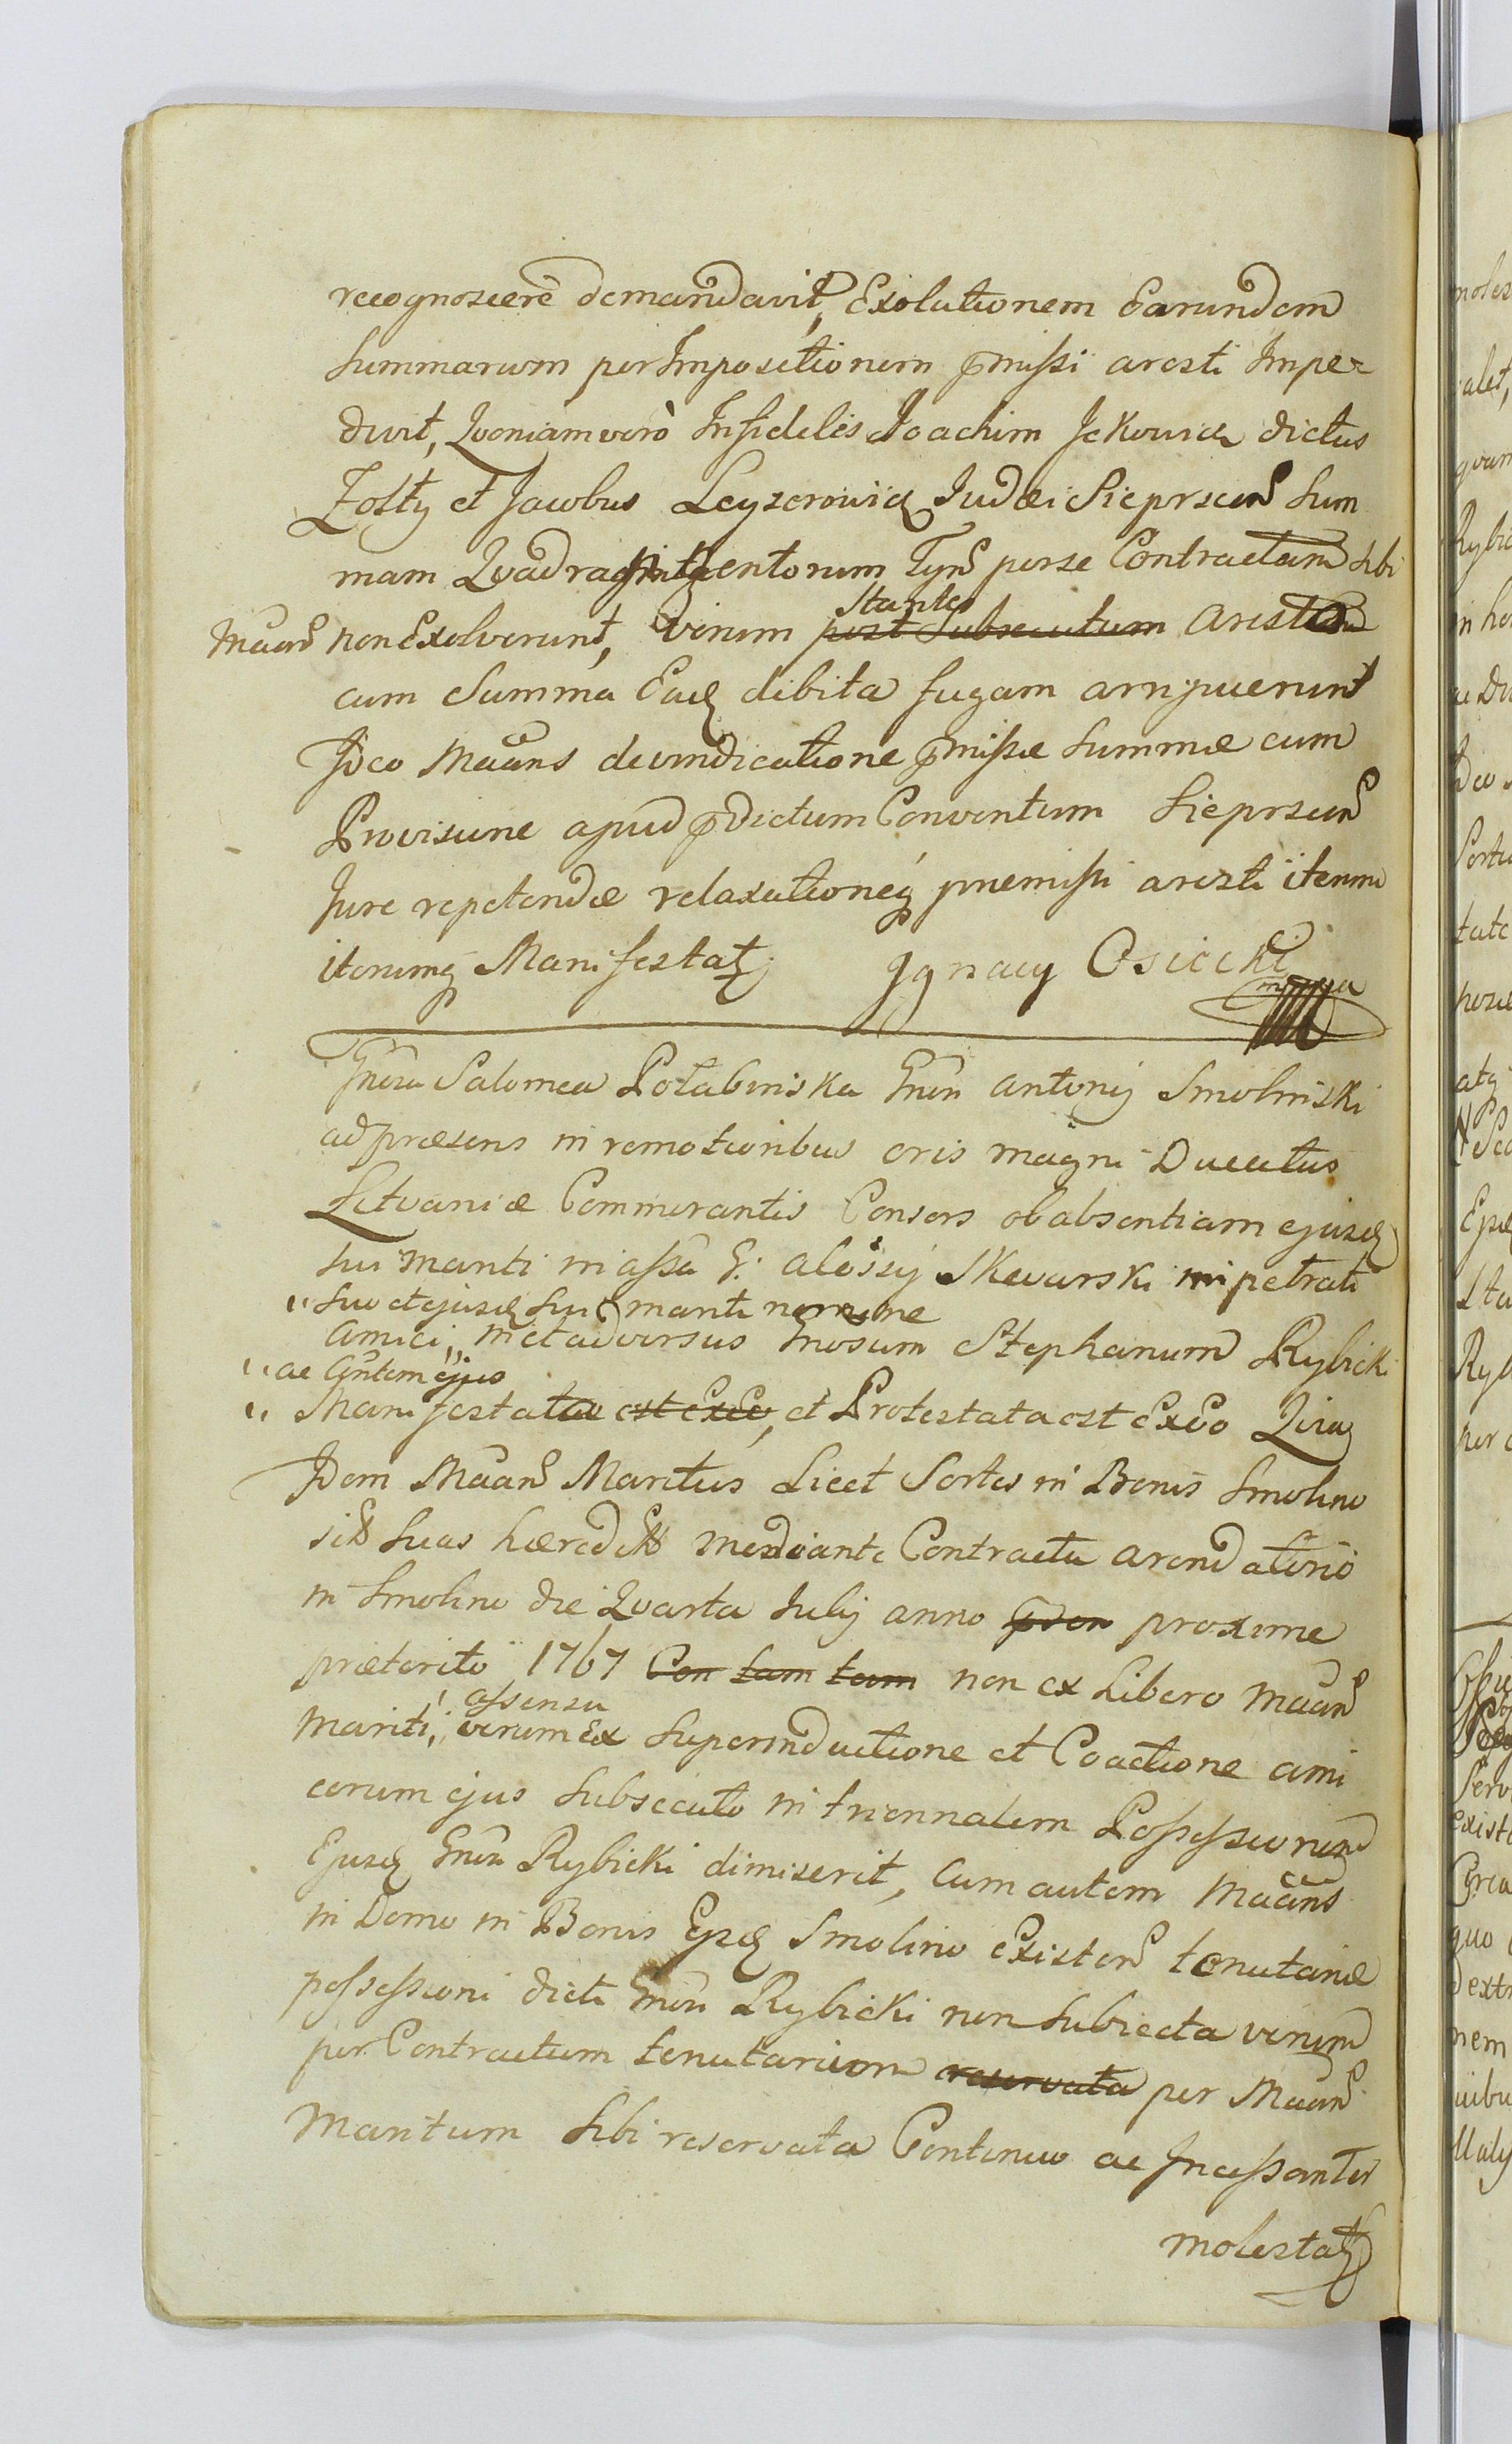 recognoscere demandavit, Exolutionem Earundem
Summarum per Impositionem pmissi aresti Impe=
divit, Qvoniam verò Infideles Joachim Jckowicz dictus
Zołty et Jacobus Leyzerowicz Judæi Sieprscens Sum
mam Qvadragentorum Tynf per se Contractam sibi
Maan non Exolverunt, verum Stante post Subsecutum aresto
cum Summa Eadq debita fugam arripuerunt
Ideo Maans de vindicatione pmissæ Summæ cum
Provisione apud pdictum Conventum Sieprscen
Jure repetendæ relaxationeq præmissi aresti iterum
iterumq Manifestat; Ignacy Osiecki
mppa
Gnosa Salomea Połabinska Gnosi Antonij Smolinski
ad præsens in remotioribus oris Magni Ducatus
Litvaniæ Commorantis Consors ob absentiam ejusdq
sui mariti in assa G: Aloisij Skwarski impetrati
" Suo et ejusdq sui mariti nomine
amici " in et adversus Gnosum Stephanum Rybicki
" ae Contem ejus
" Manifestata est Exeo, et Protestata est Exeo Qvia
Idem Maan Maritus Licet Sortes in Bonis Smolino
sib Suas hæredit mediante Contractu arendatorio
in Smolino die Qvarta Julij anno pden proxime
præterito 1767 Con tam tam non ex Libero Maan
assensu
Mariti, verum Ex Superinductione et Coactione ami
corum ejus Subsecuto in triennalem Possessionem
Ejusdq Gnosi Rybicki dimiserit, Cum autem Maans
in Domo in Bonis Ejsdq Smolino Existen tenutariæ
possessioni dicti Gnosi Rybicki non Subiecta verum
per Contractum tenutarium reservata per Maan
Maritum Sibi reservata Continuo ac Incessanter
molestat